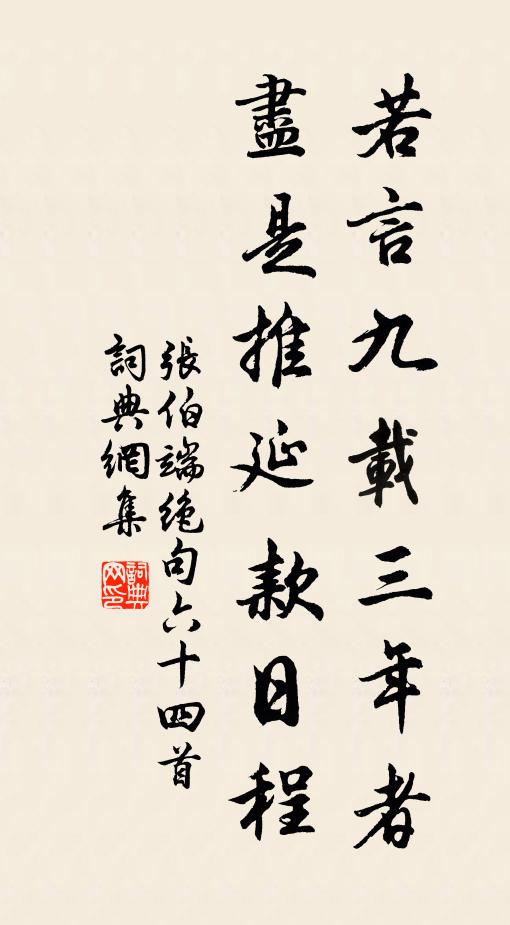 若言九載三年者
盡是推延款日程
張伯端絶句六十四首
詞典網集
詞典网印